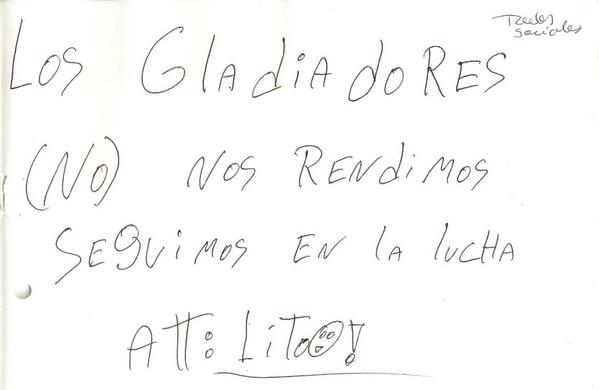 Redes
sociales
Los GladiadoRES
(No) Nos RENdiMos
SEGUiMos EN la lucHA
Att: Lito☺!